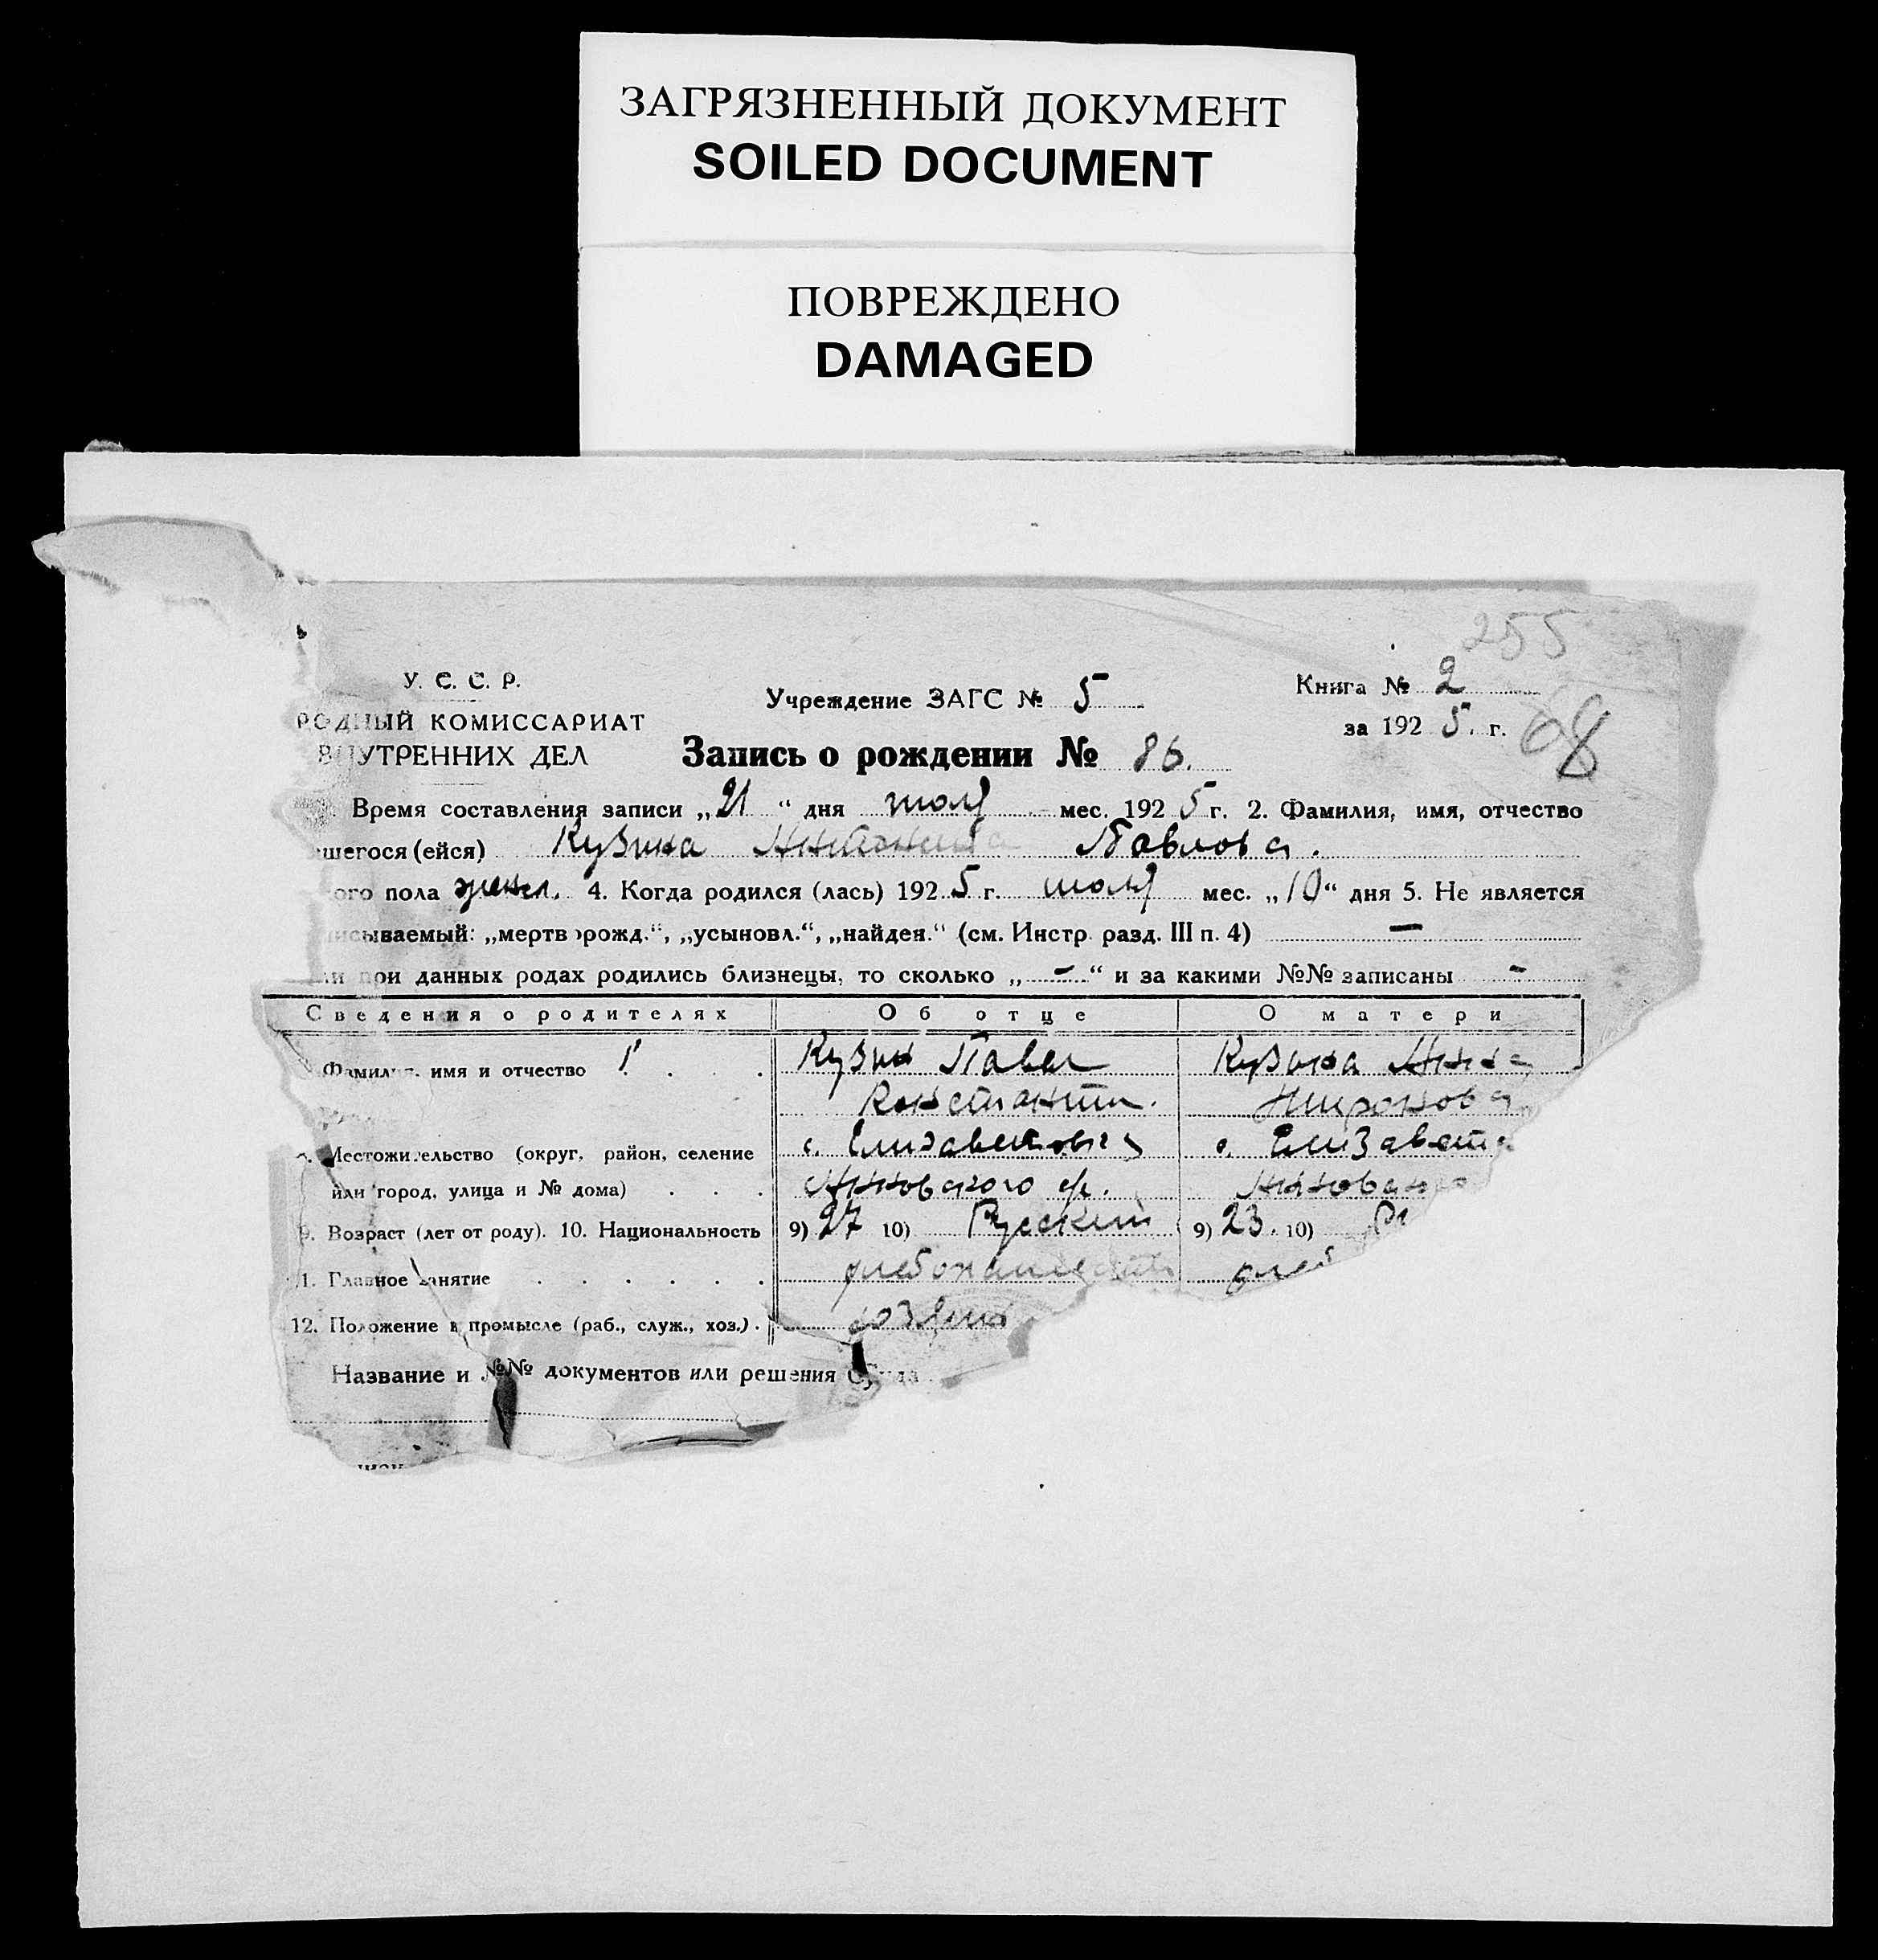 ЗАГРЯЗНЕННЫЙ ДОКУМЕНТ
SOILED DOCUMENT
ПОВРЕЖДЕНО
DAMAGED
255
У. С. С. Р.
Учреждение ЗАГС № 5
Книга № 2
РОДНЫЙ КОМИССАРИАТ
за 192 5. г.
68
ВНУТРЕННИХ ДЕЛ
Запись о рождении № 86.
Время составления записи „21“ дня июля мес. 192 5 г. 2. Фамилия, имя, отчество
шегося (ейся) Кузина Антонина Павлова.
ого пола женск. 4. Когда родился (лась) 192 5 г. июля мес. „10“ дня 5. Не является
исываемый: „мертворожд.“, „усыновл.“, „найден.“ (см. Инстр. разд. III п. 4) —
и при данных родах родились близнецы, то сколько „-“ и за какими №№ записаны -
Сведения о родителях Об отце О матери
Фамилия, имя и отчество Кузин Павел Кузина Анна
Константин.
Местожительство (округ, район, селение с. Елизаветовка с. Елизавет
или город, улица и № дома) р.
9. Возраст (лет от роду). 10. Национальность 9) 27 10) Русский 9) 23. 10)
11. Главное занятие хлебопашество хлеб
12. Положение в промысле (раб., служ., хоз.) хозяин
Название и №№ документов или решения Суда